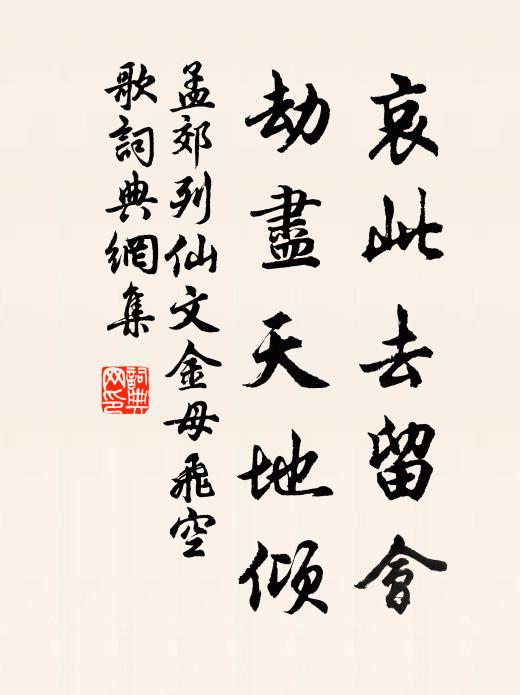 哀此去留會
劫盡天地傾
孟郊列仙文金母飛空
歌詞典網集
詞典網印